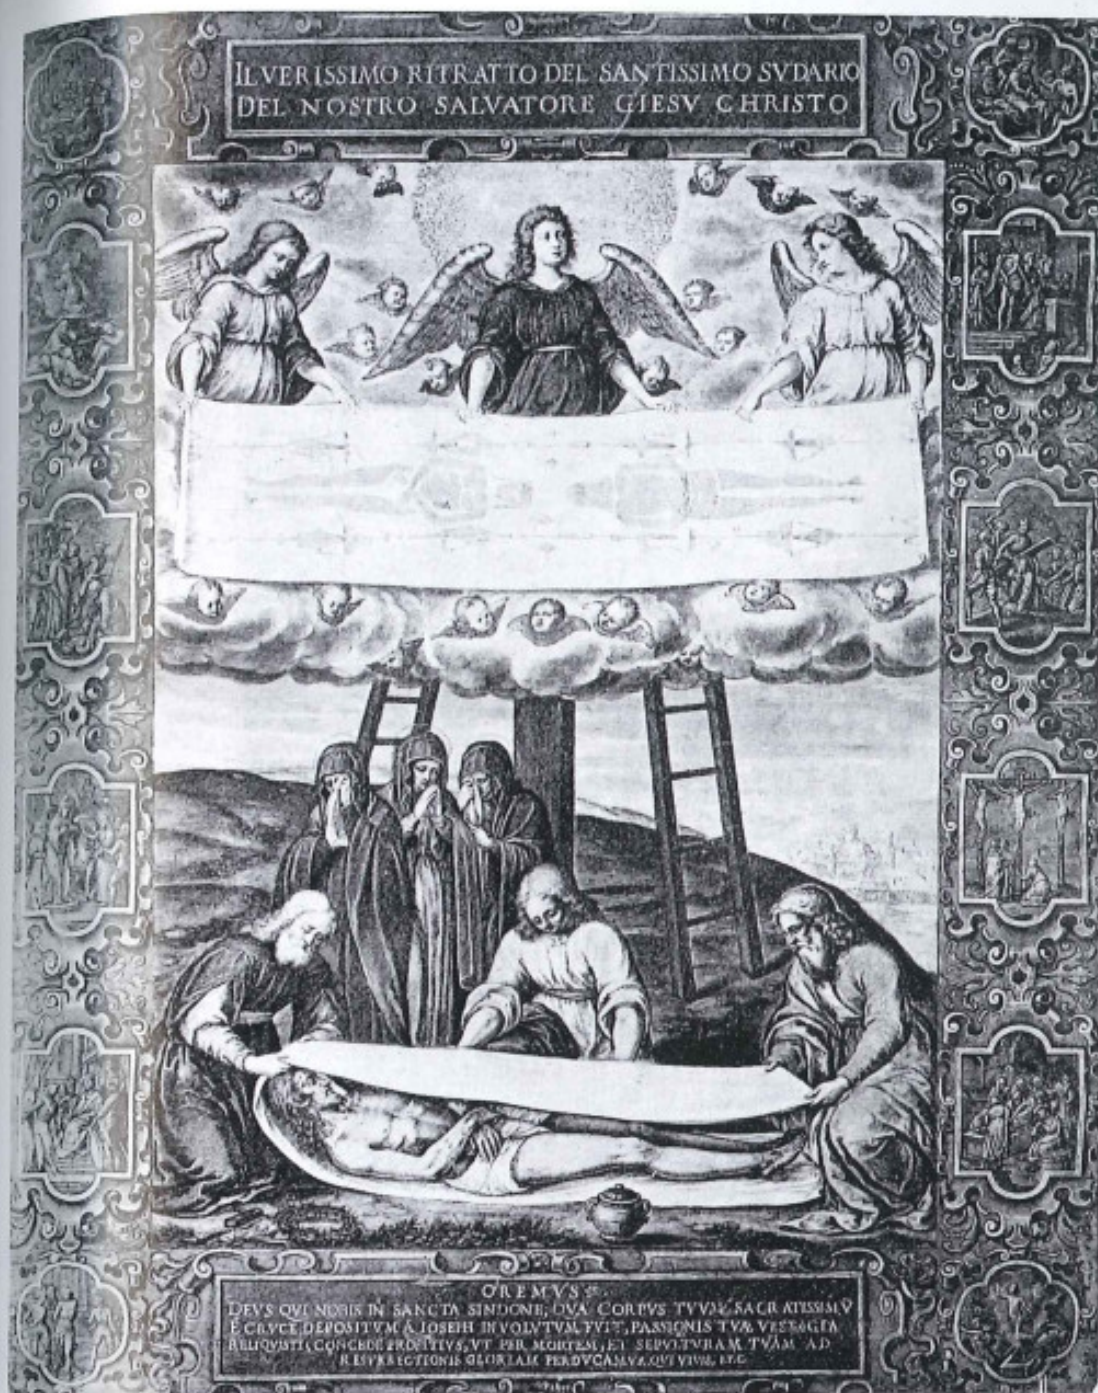 IL VERISSIMO RITRATTO DEL SANTISSIMO SVDARIO
DEL NOSTRO SALVATORE GIESV CHRISTO
OREMVS
DEVS QVI NOBIS IN SANCTA SINDONE, QVA CORPVS TVVM SACRATISSIMV
E CRVCE DEPOSITVM A IOSEPH INVOLVTVM FVIT, PASSIONIS TVÆ VESTIGIA
RELIQVISTI, CONCEDE PROPITIVS, VT PER MORTEM, ET SEPVLTVRAM TVAM AD
RESVRRECTIONIS GLORIAM PERDVCAMVR. QVI VIVIS, ETC.